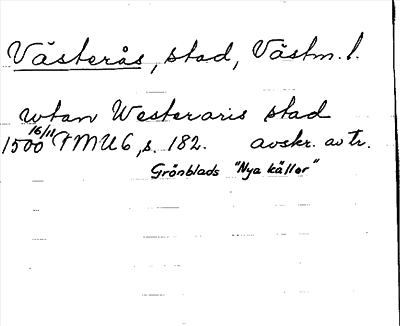 Västerås, stad, Västm. l.
utan Westeraris stad
16/11
1500 FMU 6, s. 182. avskr. av tr.
Grönblads "Nya källor"